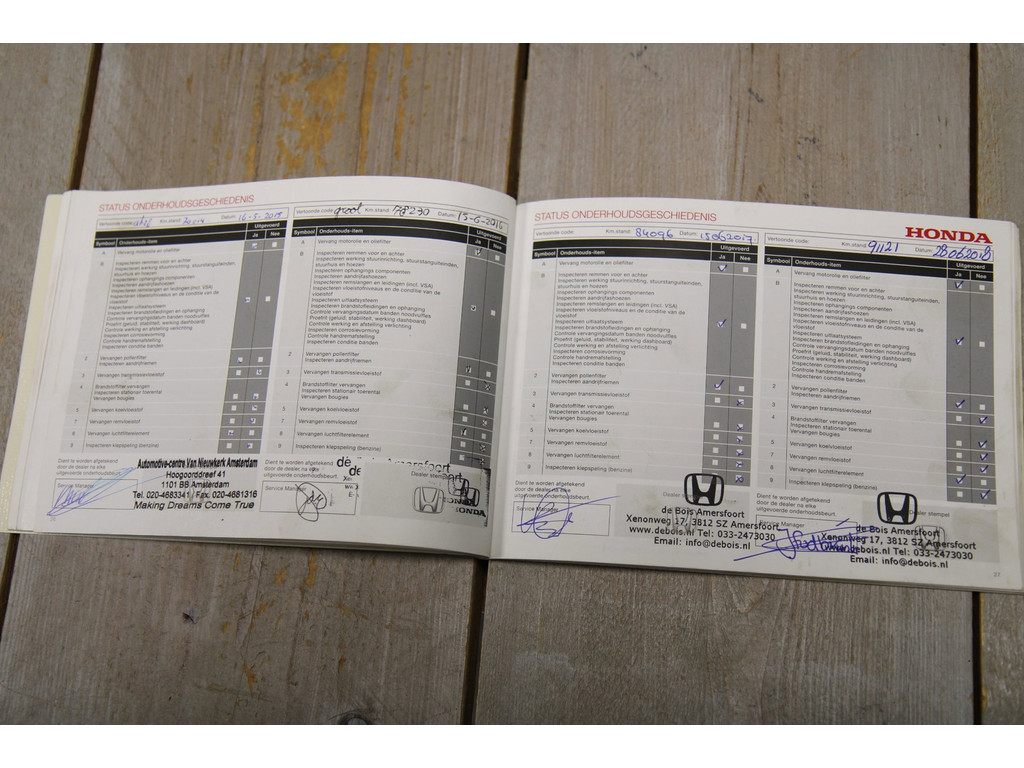 STATUS ONDERHOUDSGESCHIEDENIS
Vertoonde code: Km.stand: Datum: 16-3-2015
Uitgevoerd
Symbool Onderhouds-item Ja Nee
A Vervang motorolie en oliefilter
B Inspecteren remmen voor en achter
Inspecteren werking stuurinrichting, stuurstangeinden,
stuurhuis en hoezen
Inspecteren ophangings componenten
Inspecteren aandrijfashoezen
Inspecteren remslangen en leidingen (incl. VSA)
Inspecteren vloeistofniveaus en de conditie van de
vloeistof
Inspecteren uitlaatsysteem
Inspecteren brandstofleidingen en ophanging
Controle vervangingsdatum banden noodvulfles
Proefrit (geluid, stabiliteit, werking dashboard)
Controle werking en afstelling verlichting
Inspecteren corrosievorming
Controle handremafstelling
Inspecteren conditie banden
2 Vervangen pollenfilter
Inspecteren aandrijfriemen
3 Vervangen transmissievloeistof
4 Brandstoffilter vervangen
Inspecteren stationair toerental
Vervangen bougies
5 Vervangen koelvloeistof
7 Vervangen remvloeistof
8 Vervangen luchtfilterelement
9 Inspecteren klepspeling (benzine)
Dient te worden afgetekend
door de dealer na elke
uitgevoerde onderhoudsbeurt.
Service Manager
Automotive-centre Van Nieuwkerk Amsterdam
Hoogoorddreef 41
1101 BB Amsterdam
Tel. 020-4683341 Fax. 020-4681316
Making Dreams Come True
Vertoonde code: groot Km.stand: 78290 Datum: 15-6-2016
Uitgevoerd
Symbool Onderhouds-item Ja Nee
A Vervang motorolie en oliefilter
B Inspecteren remmen voor en achter
Inspecteren werking stuurinrichting, stuurstangeinden,
stuurhuis en hoezen
Inspecteren ophangings componenten
Inspecteren aandrijfashoezen
Inspecteren remslangen en leidingen (incl. VSA)
Inspecteren vloeistofniveaus en de conditie van de
vloeistof
Inspecteren uitlaatsysteem
Inspecteren brandstofleidingen en ophanging
Controle vervangingsdatum banden noodvulfles
Proefrit (geluid, stabiliteit, werking dashboard)
Controle werking en afstelling verlichting
Inspecteren corrosievorming
Controle handremafstelling
Inspecteren conditie banden
2 Vervangen pollenfilter
Inspecteren aandrijfriemen
3 Vervangen transmissievloeistof
4 Brandstoffilter vervangen
Inspecteren stationair toerental
Vervangen bougies
5 Vervangen koelvloeistof
7 Vervangen remvloeistof
8 Vervangen luchtfilterelement
9 Inspecteren klepspeling (benzine)
Dient te worden afgetekend
door de dealer na elke
Service Manager
de Bois Amersfoort
Dealer stempel
HONDA
STATUS ONDERHOUDSGESCHIEDENIS
HONDA
Vertoonde code: Km.stand: 84096 Datum: 15062017
Uitgevoerd
Symbool Onderhouds-item Ja Nee
A Vervang motorolie en oliefilter
B Inspecteren remmen voor en achter
Inspecteren werking stuurinrichting, stuurstangeinden,
stuurhuis en hoezen
Inspecteren ophangings componenten
Inspecteren aandrijfashoezen
Inspecteren remslangen en leidingen (incl. VSA)
Inspecteren vloeistofniveaus en de conditie van de
vloeistof
Inspecteren uitlaatsysteem
Inspecteren brandstofleidingen en ophanging
Controle vervangingsdatum banden noodvulfles
Proefrit (geluid, stabiliteit, werking dashboard)
Controle werking en afstelling verlichting
Inspecteren corrosievorming
Controle handremafstelling
Inspecteren conditie banden
2 Vervangen pollenfilter
Inspecteren aandrijfriemen
3 Vervangen transmissievloeistof
4 Brandstoffilter vervangen
Inspecteren stationair toerental
Vervangen bougies
5 Vervangen koelvloeistof
7 Vervangen remvloeistof
8 Vervangen luchtfilterelement
9 Inspecteren klepspeling (benzine)
Dient te worden afgetekend
door de dealer na elke
uitgevoerde onderhoudsbeurt.
Service Manager
de Bois Amersfoort
Xenonweg 17, 3812 SZ Amersfoort
www.debois.nl Tel: 033-2473030
Email: info@debois.nl
Vertoonde code: Km.stand: 91121 Datum: 28062018
Uitgevoerd
Symbool Onderhouds-item Ja Nee
A Vervang motorolie en oliefilter
B Inspecteren remmen voor en achter
Inspecteren werking stuurinrichting, stuurstangeinden,
stuurhuis en hoezen
Inspecteren ophangings componenten
Inspecteren aandrijfashoezen
Inspecteren remslangen en leidingen (incl. VSA)
Inspecteren vloeistofniveaus en de conditie van de
vloeistof
Inspecteren uitlaatsysteem
Inspecteren brandstofleidingen en ophanging
Controle vervangingsdatum banden noodvulfles
Proefrit (geluid, stabiliteit, werking dashboard)
Controle werking en afstelling verlichting
Inspecteren corrosievorming
Controle handremafstelling
Inspecteren conditie banden
2 Vervangen pollenfilter
Inspecteren aandrijfriemen
3 Vervangen transmissievloeistof
4 Brandstoffilter vervangen
Inspecteren stationair toerental
Vervangen bougies
5 Vervangen koelvloeistof
7 Vervangen remvloeistof
8 Vervangen luchtfilterelement
9 Inspecteren klepspeling (benzine)
Dient te worden afgetekend
door de dealer na elke
uitgevoerde onderhoudsbeurt.
Service Manager
Dealer stempel
de Bois Amersfoort
Xenonweg 17, 3812 SZ Amersfoort
www.debois.nl Tel: 033-2473030
Email: info@debois.nl